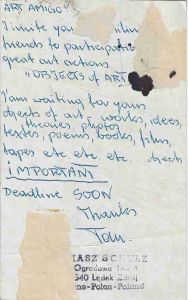 ART AMIGO
I invite you
friends to participate
great art actions
"OBJECTS of ART
I am waiting for yours
objects of art, works, ideas,
theories, photos,
textes, poems, books, films,
tapes etc. etc. etc. .. objects
IMPORTANT
Deadline SOON
Thanks
Tom
MASZ SCHULZ
Ogrodowa
540 Lądek Zdrój
Polen-Poland